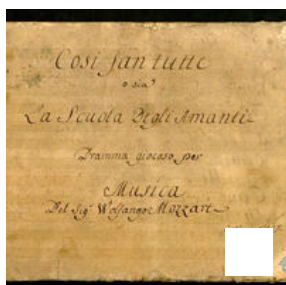 Cosi fan tutte
o sia
La Scuola Degli Amanti
Dramma giocoso per
Musica
Del Sig.r Wolfango Mozzart